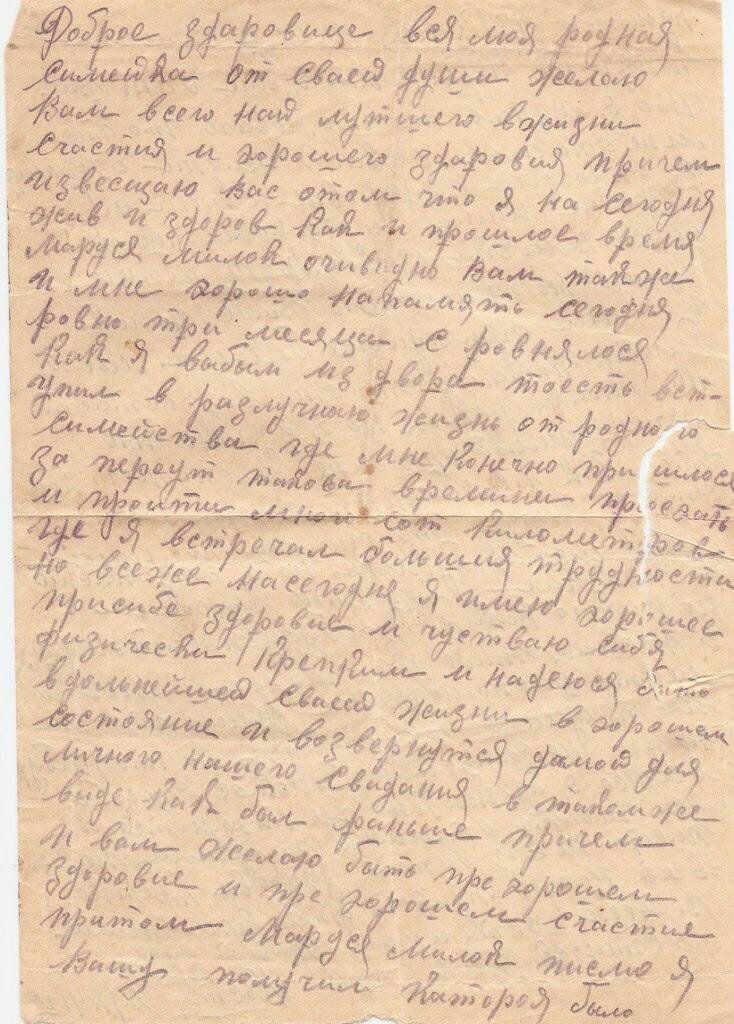 Доброе здаровице вся моя родная
симейка от сваей души желаю
Вам всего най лутшего вжизни
счастия и хорошего здаровия причем
извесщаю Вас отом что я на сегодня
жив и здоров как и прошлое время
Маруся милок очиводно Вам также
и мне хорошо напамять сегодня
ровно три месяца с ровнялося
как я вабыл из двора тоесть вст-
упил в разлучнаю жизнь от родного
симейства где мне конечно пришлося
за период такова времини проехать
и проити много сот километров
где я встречал большия трудности
но всеже насегодня я имею хорошее
присибе здоровие и чустваю сибя
физически крепким и надеюся быть
вдольнейшей сваей жизни в хорошем
состояние и возвернутся дамой для
личного нашего свидания в такомже
виде как был раньше причем
и вам желаю быть прехорошем
здоровие и прехорошем счастие
притом Маруся милок писмо я
Вашу получил каторая было